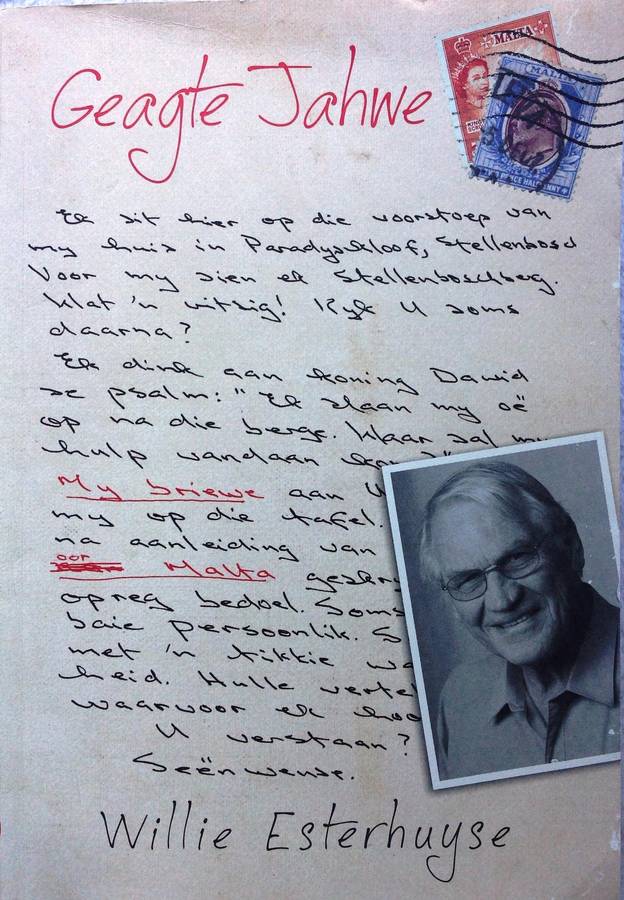 Geagte Jahwe
MALTA
MALTA
Ek sit hier op die voorstoep van
my huis in Paradyskloof, Stellenbosc
Voor my sien ek Stellenboschberg.
Wat 'n uitsig! Kyk U soms
daarna?
Ek dink aan koning Dawid
se psalm: "Ek slaan my oë
op na die berge. Waar sal my
hulp vandaan
My briewe aan U
my op die tafel.
na aanleiding van
oor
Malta geskry
opreg bedoel. Soms
baie persoonlik. S
met 'n tikkie wa
heid. Hulle vertel
waarvoor ek hoo
U verstaan?
Seënwense.
Willie Esterhuyse